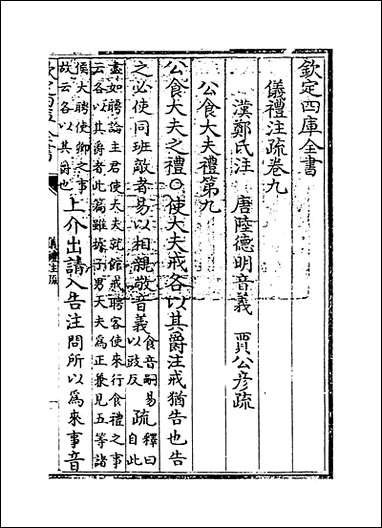 欽定四庫全書
儀禮注疏卷九
漢鄭氏注　唐陸德明音義　賈公彦疏
公食大夫禮第九
公食大夫之禮○使大夫戒各以其爵注戒猶告也告
之必使同班敵者易以相親敬音義食音嗣易以豉反疏釋曰自此
盡如聘論主君使大夫就館戒聘客使來行食禮之事
云各以其爵者此篇雖據子男大夫為正兼見五等諸
侯大聘使卿之事故云各以其爵也上介出請入告注問所以為來事音
儀禮注疏